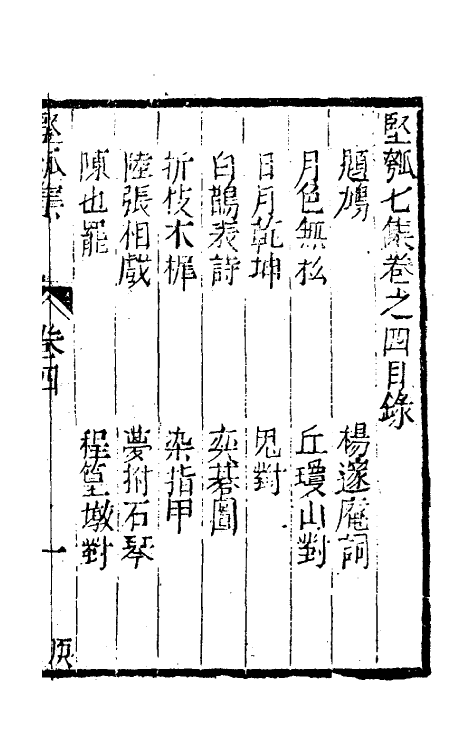 堅瓠七集卷之四目錄
題鳩　楊邃庵詞
月色無私　丘瓊山對
日月乾坤　鬼對
白鵲表詩　奕碁圖
折枝木樨　染指甲
陸張相戲　夢拊石琴
陳也罷　程篁墩對
堅瓠集　卷四　一